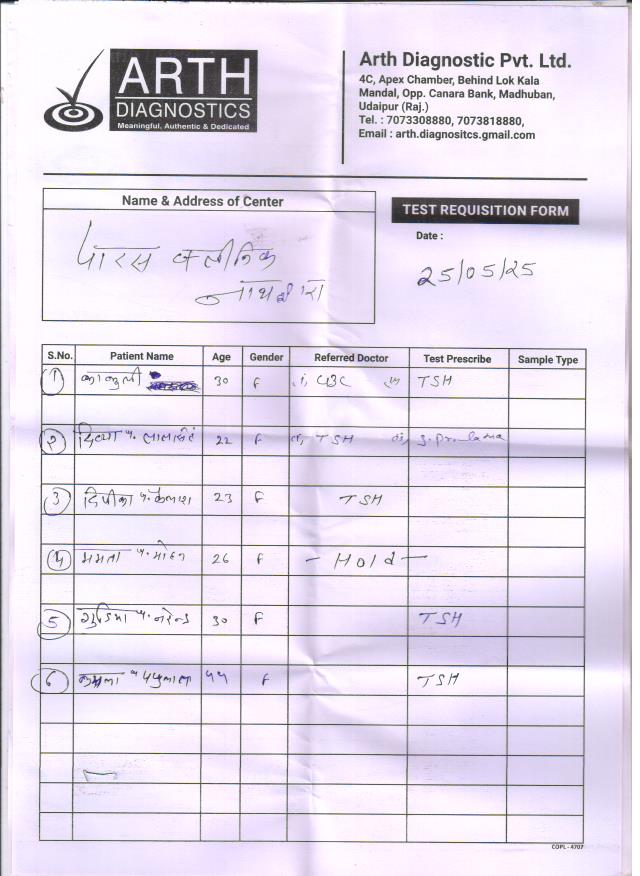 ARTH
DIAGNOSTICS
Meaningful, Authentic & Dedicated
Arth Diagnostic Pvt. Ltd.
4C, Apex Chamber, Behind Lok Kala
Mandal, Opp. Canara Bank, Madhuban,
Udaipur (Raj.)
Tel. : 7073308880, 7073818880,
Email : arth.diagnositcs.gmail.com
Name & Address of Center
पारस क्लीनिक
नाथद्वारा
TEST REQUISITION FORM
Date :
25/05/25
S.No. Patient Name Age Gender Referred Doctor Test Prescribe Sample Type
1 30 F CBC TSH
2 दिव्या 22 F TSH
3 दिपीका कैलाश 23 F TSH
4 ममता 26 F - Hold -
5 30 F TSH
6 F TSH
COPL - 4707